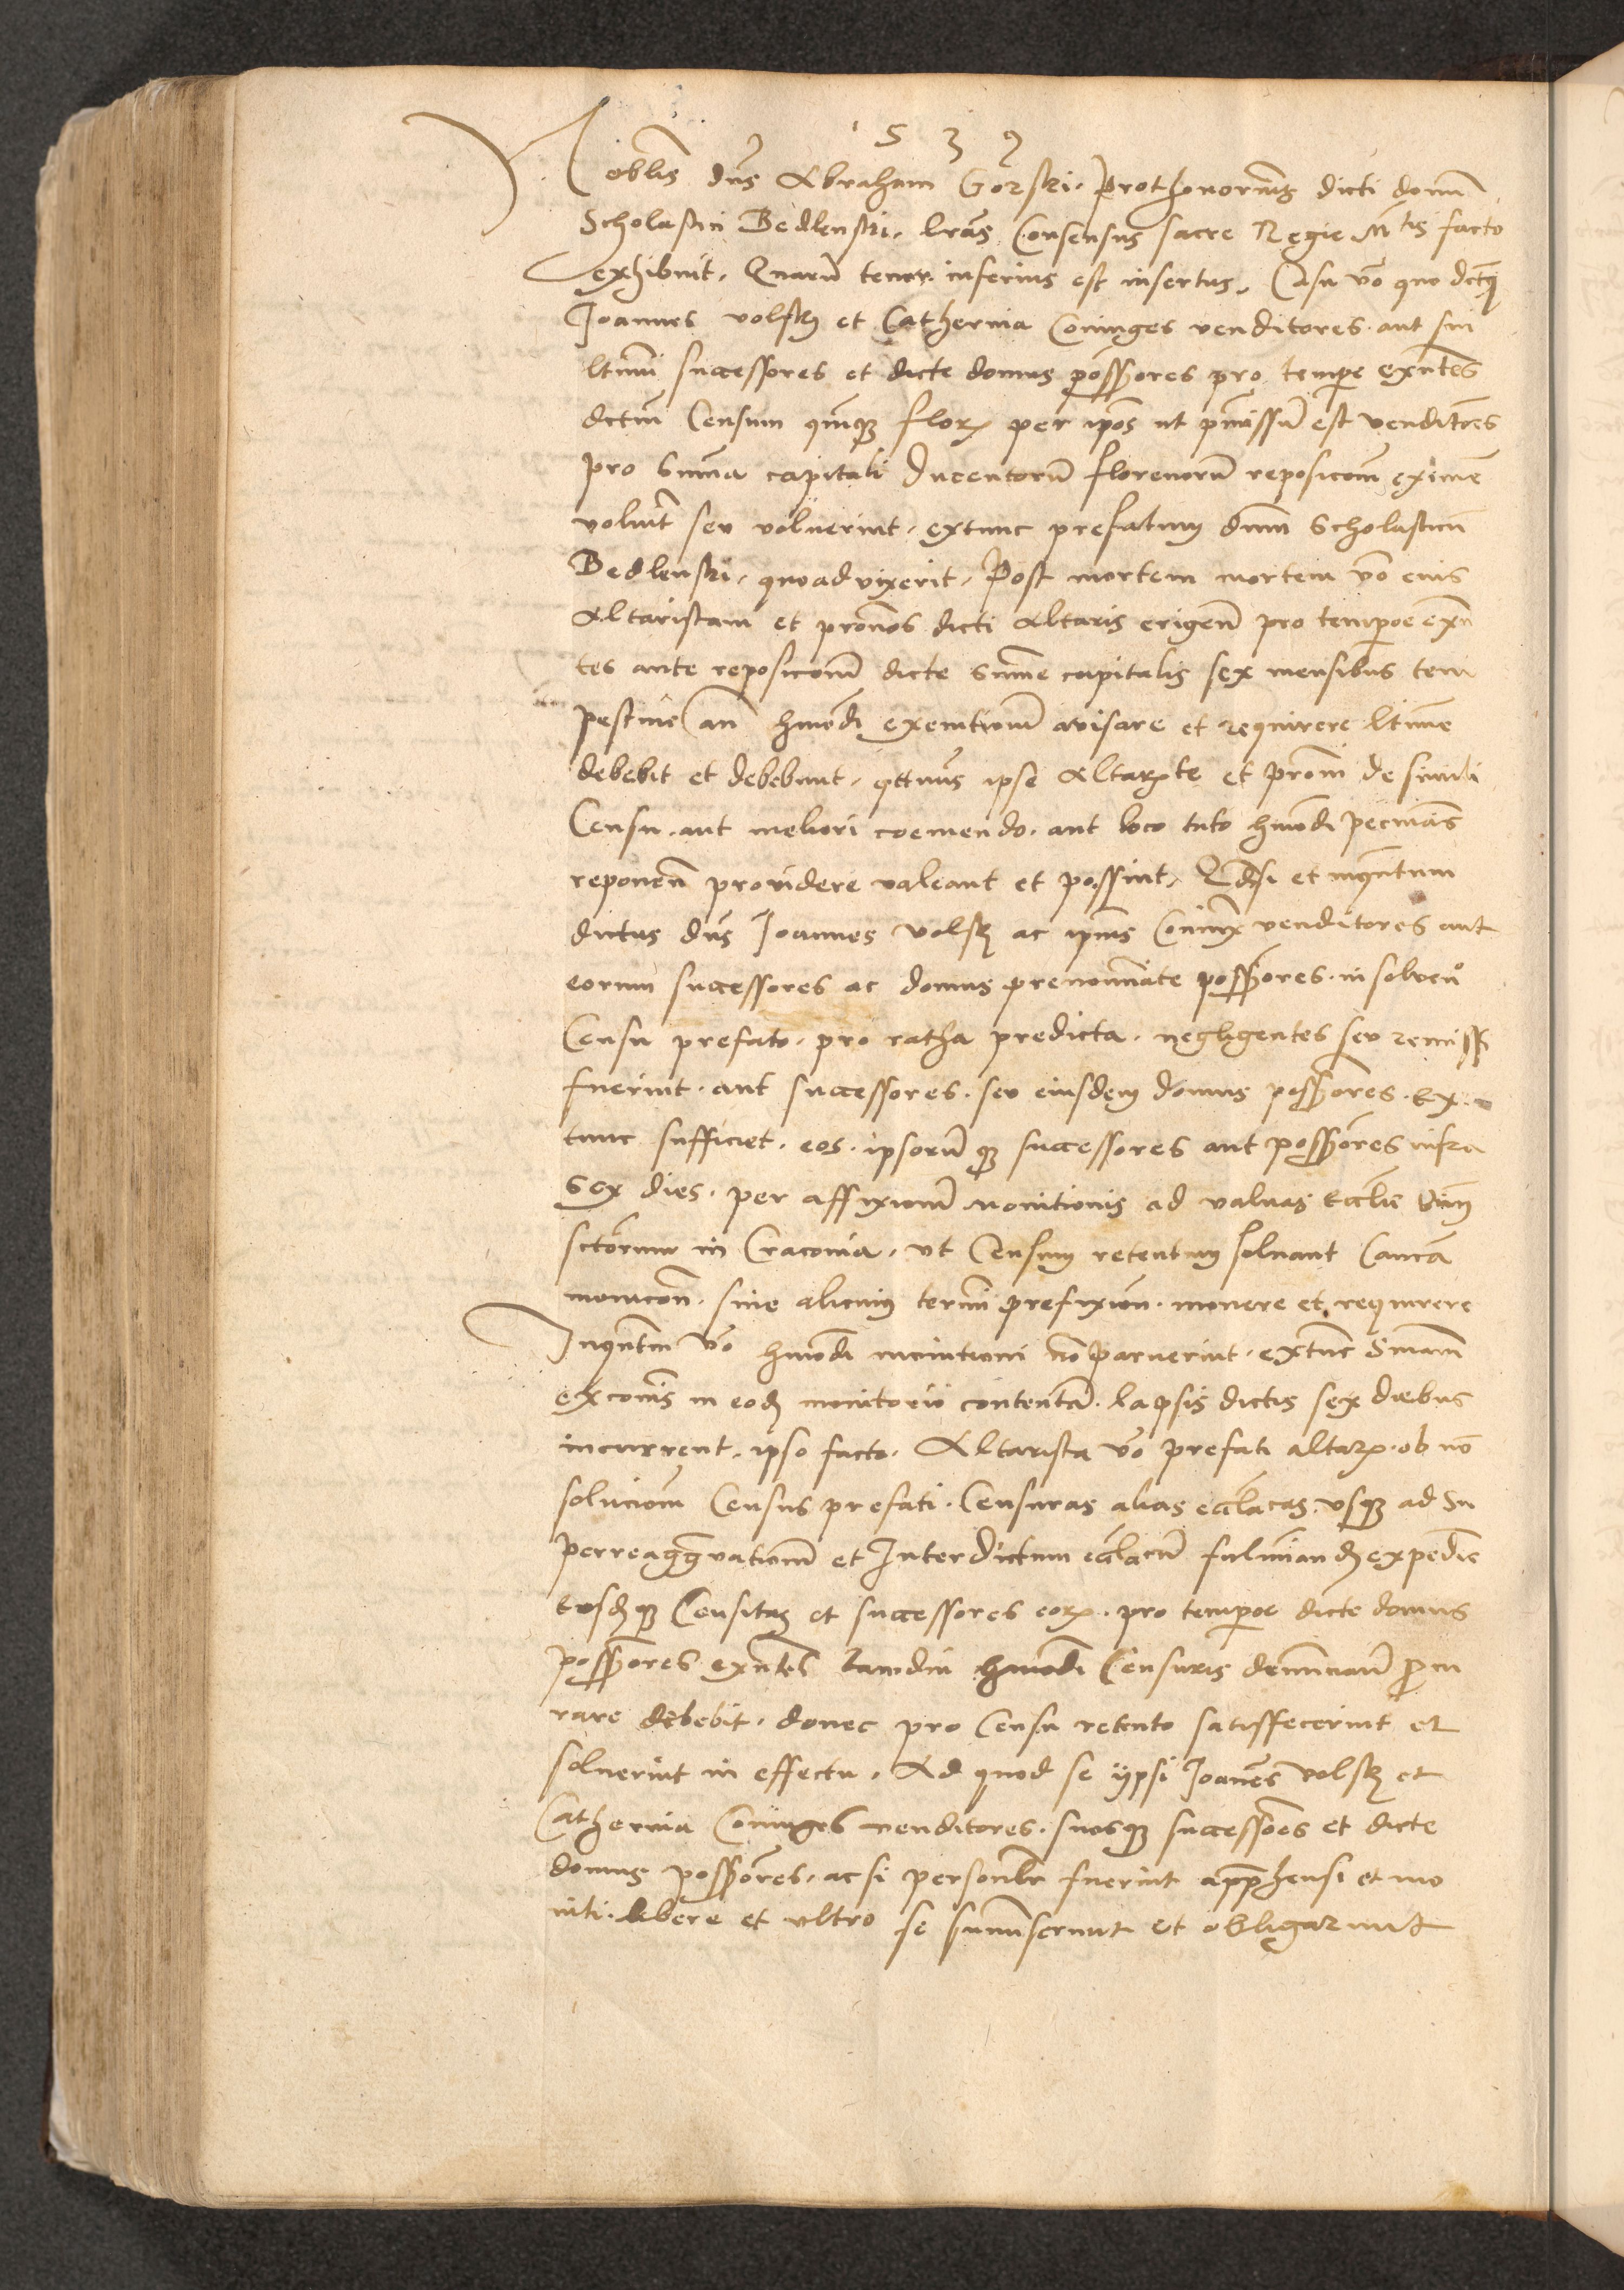 1539
Noblis dns Abraham Gorski prothonorius dicti domi
Scholastici Bedlenski. lras Consensus sacre Regie Mtis facto
exhibuit. Quaru tenor inferius est insertus. Casu vo quo dctus
Joannes volski et Catherina Coniuges venditores aut sui
ltimi successores et dicte domus possores pro tempe exntes
dctum Censum quinque florz per ipos ut pmissu est venditores
pro summa capitali Ducentoru florenoru reposicom eximere
voluit seu voluerint. extunc prefatum dnm Scholasticu
Bedlenski. quoad vixerit. Post mortem mortem vo eius
Altaristam et pronos dicti Altaris erigen pro tempore exn
tes ante reposiconem dicte summe capitalis sex mensibus tem
pestive an hmodi exemtionem avisare et requirere ltime
debebit et debebunt. qttnus ipse Altarste et promi de simili
Censu. aut meliori coemendo. aut loco tuto hmodi pecunias
reponen providere valeant et possint. Qdsi et inquntum
dictus dns Joannes Volski ac ipius Coniunx venditores aut
eorum successores ac domus prenominate possores. in solven
Censu prefato. pro ratha predicta. negligentes seu remissi
fuerint. aut successores. seu eiusdem domus possores. Ex
tunc sufficiet. eos. ipsoruque successores aut possores infra
Sex dies. per affixionem monitionis ad valuas Ecclie Oium
sctorum in Cracovia. ut Censum retentum solvant
monicon. sine alicuius termi prefixion. monere et requirere
Inquntum vo hmodi monitioni no paruerint. extunc Sniam
exconis in eod monitorio contenta. lapsis dictis sex diebus
incurrent. ipso facto. Altarista vo prefati altarz. ob no
solucionem Census prefati. Censuras alias ecclicas usque ad Su
perreaggravationem et Interdictum ecclicu fulminand expedire
eosdque Censitas et successores eorz. pro tempore dicte domus
possores exntes tamdiu hmodi Censuris denunciari procu
rare debebit. donec pro Censu retento satisffecerint et
solverint in effectu. Ad quod se ijpsi Joannes Volski et
Catherina Coniuges venditores. suosque successores et dicte
domus possores. ac si personlr fuerint apphensi et mo
niti. libere et ultro se summiserunt et obligarunt